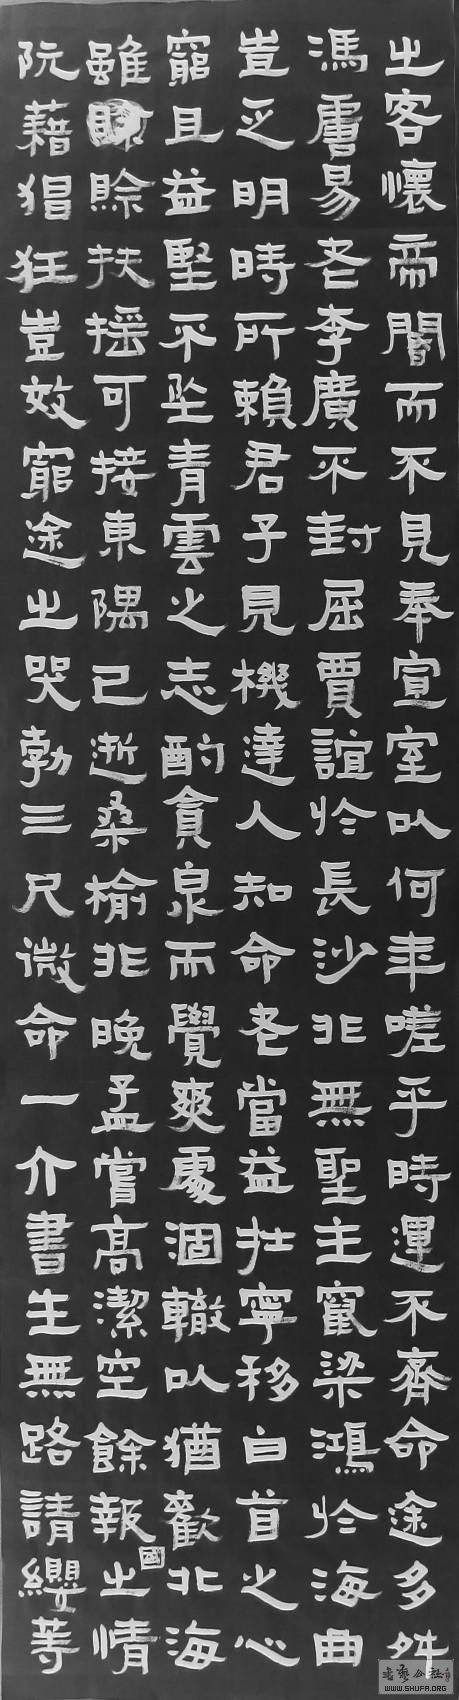 之客懷帝閽而不見奉宣室以何年嗟乎時運不齊命途多舛
馮唐易老李廣不封屈賈誼於長沙非無聖主竄梁鴻於海曲
豈乏明時所賴君子見機達人知命老當益壯寧移白首之心
窮且益堅不坠青雲之志酌貪泉而覺爽處涸轍以猶歡北海
雖賒扶搖可接東隅已逝桑榆非晚孟嘗高潔空餘報國之情
阮藉猖狂豈效窮途之哭勃三尺微命一介書生無路請纓等
WWW.SHUFA.ORG